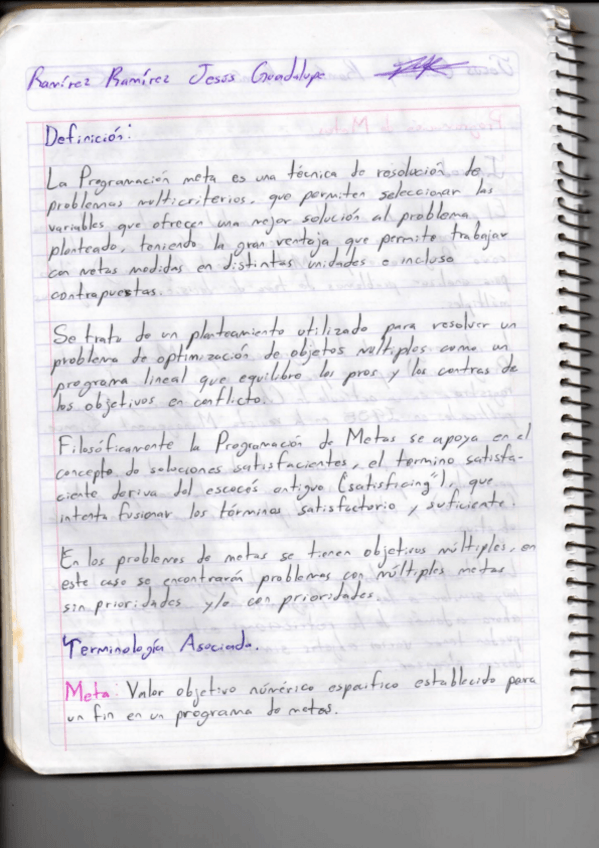 Ramírez Ramírez Jesús Guadalupe
Definición:
La Programación meta es una técnica de resolución de
problemas multicriterios, que permiten seleccionar las
variables que ofrecen una mejor solución al problema
planteado, teniendo la gran ventaja que permite trabajar
con metas medidas en distintas unidades e incluso
contrapuestas.
Se trata de un planteamiento utilizado para resolver un
problema de optimización de objetos múltiples como un
programa lineal que equilibre los pros y los contras de
los objetivos en conflicto.
Filosóficamente la Programación de Metas se apoya en el
concepto de soluciones satisfacientes, el termino satisfa-
ciente deriva del escocés antiguo (satisficing"), que
intenta fusionar los términos satisfactorio y suficiente.
En los problemas de metas se tienen objetivos múltiples, en
este caso se encontrarán problemas con múltiples metas
sin prioridades y/o con prioridades.
Terminología Asociada.
Meta: Valor objetivo númerico especifico establecido para
un fin en un programa de metas.